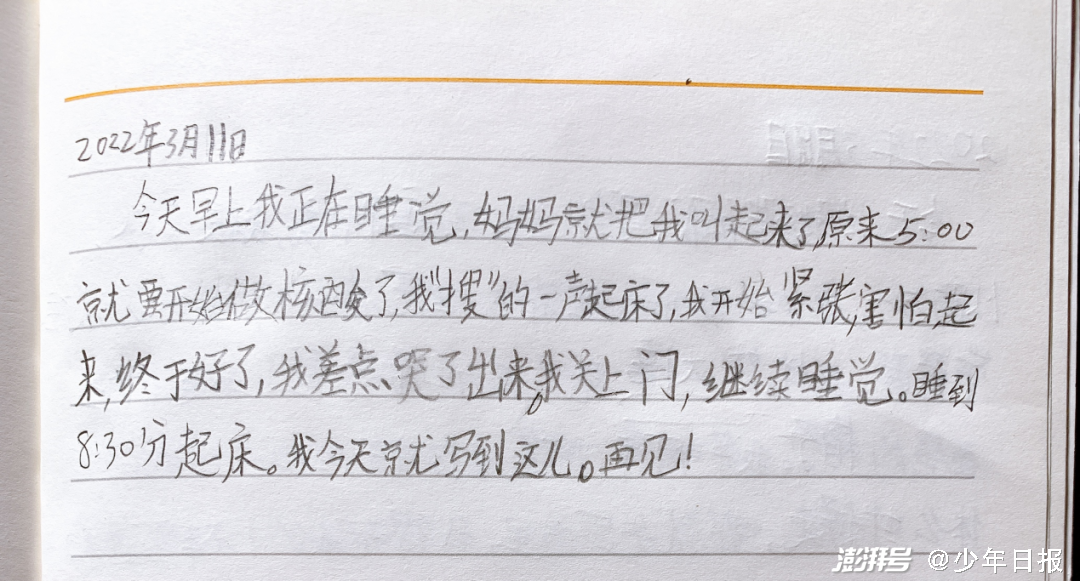 2022年3月11日
今天早上我正在睡觉,妈妈就把我叫起来了,原来5:00
就要开始做核酸了,我"搜"的一声起床了,我开始紧张,害怕起
来,终于好了,我差点哭了出来。我关上门,继续睡觉。睡到
8:30分起床。我今天就写到这儿。再见!
澎湃号 @少年日报